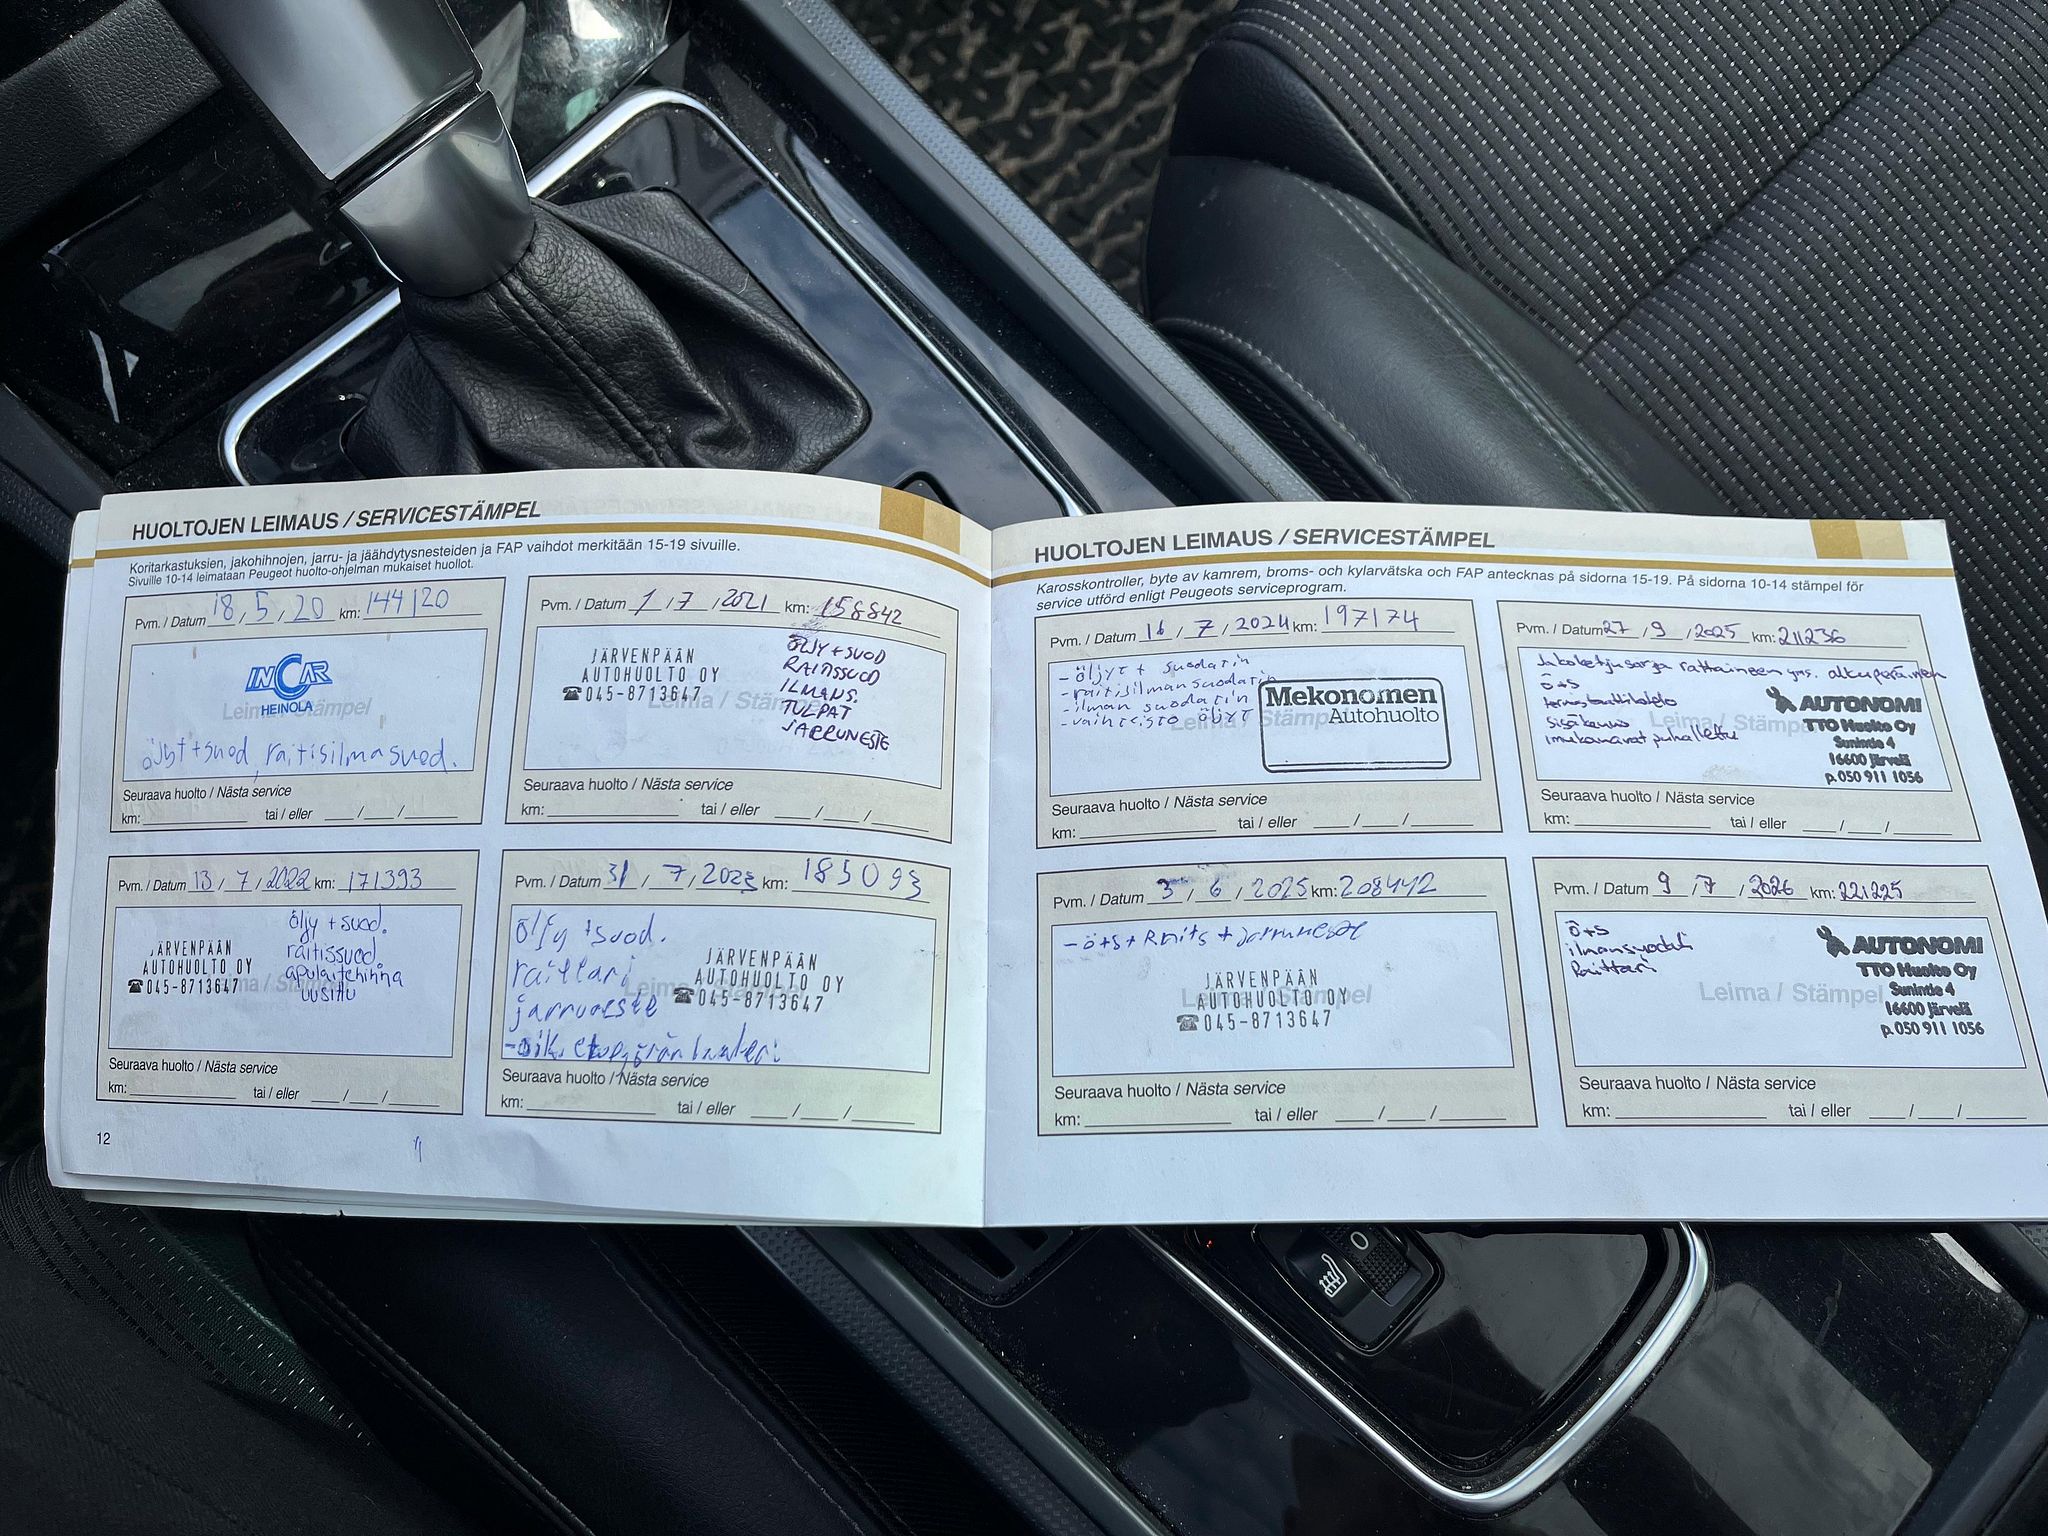 HUOLTOJEN LEIMAUS / SERVICESTÄMPEL
Koritarkastuksien, jakohihnojen, jarru- ja jäähdytysnesteiden ja FAP vaihdot merkitään 15-19 sivuille.
Sivuille 10-14 leimataan Peugeot huolto-ohjelman mukaiset huollot.
Pvm. / Datum 18 / 5 / 20 km: 144120
INCAR
HEINOLA
Leima / Stämpel
öljyt + suod, raitisilmasuod.
Seuraava huolto / Nästa service
km: tai / eller / /
Pvm. / Datum 1 / 7 / 2021 km: 158842
JÄRVENPÄÄN
AUTOHUOLTO OY
☎045-8713647
Leima / Stämpel
ÖLJY + SUOD
RAITISSUOD
ILMANS.
TULPAT
JARRUNESTE
Seuraava huolto / Nästa service
km: tai / eller / /
Pvm. / Datum 13 / 7 / 2022 km: 171393
JÄRVENPÄÄN
AUTOHUOLTO OY
☎045-8713647
Leima / Stämpel
öljy + suod.
raitissuod.
apulaitehihna
uusittu
Seuraava huolto / Nästa service
km: tai / eller / /
Pvm. / Datum 31 / 7 / 2023 km: 185093
öljy + suod.
raittari
jarruneste
JÄRVENPÄÄN
AUTOHUOLTO OY
☎045-8713647
Leima / Stämpel
Seuraava huolto / Nästa service
km: tai / eller / /
12
HUOLTOJEN LEIMAUS / SERVICESTÄMPEL
Karosskontroller, byte av kamrem, broms- och kylarvätska och FAP antecknas på sidorna 15-19. På sidorna 10-14 stämpel för
service utförd enligt Peugeots serviceprogram.
Pvm. / Datum 16 / 7 / 2024 km: 197174
- öljyt + suodatin
- raitisilmansuodatin
- ilman suodatin
- vaihteisto öljyt
Leima / Stämpel
Mekonomen
Autohuolto
Seuraava huolto / Nästa service
km: tai / eller / /
Pvm. / Datum 27 / 9 / 2025 km: 211236
Jakoketjusarja rattaineen yms. alkuperäinen
Ö+S
termostaattikotelo
sisäkenno
imukanavat puhallettu
Leima / Stämpel
AUTONOMI
TTO Huolto Oy
Sunintie 4
16600 Järvelä
p. 050 911 1056
Seuraava huolto / Nästa service
km: tai / eller / /
Pvm. / Datum 3 / 6 / 2025 km: 208442
- ö+s + Raitis + jarruneste
JÄRVENPÄÄN
AUTOHUOLTO OY
☎045-8713647
Leima / Stämpel
Seuraava huolto / Nästa service
km: tai / eller / /
Pvm. / Datum 9 / 7 / 2026 km: 221225
Ö+S
ilmansuodati
Raittari
Leima / Stämpel
AUTONOMI
TTO Huolto Oy
Sunintie 4
16600 Järvelä
p. 050 911 1056
Seuraava huolto / Nästa service
km: tai / eller / /
0